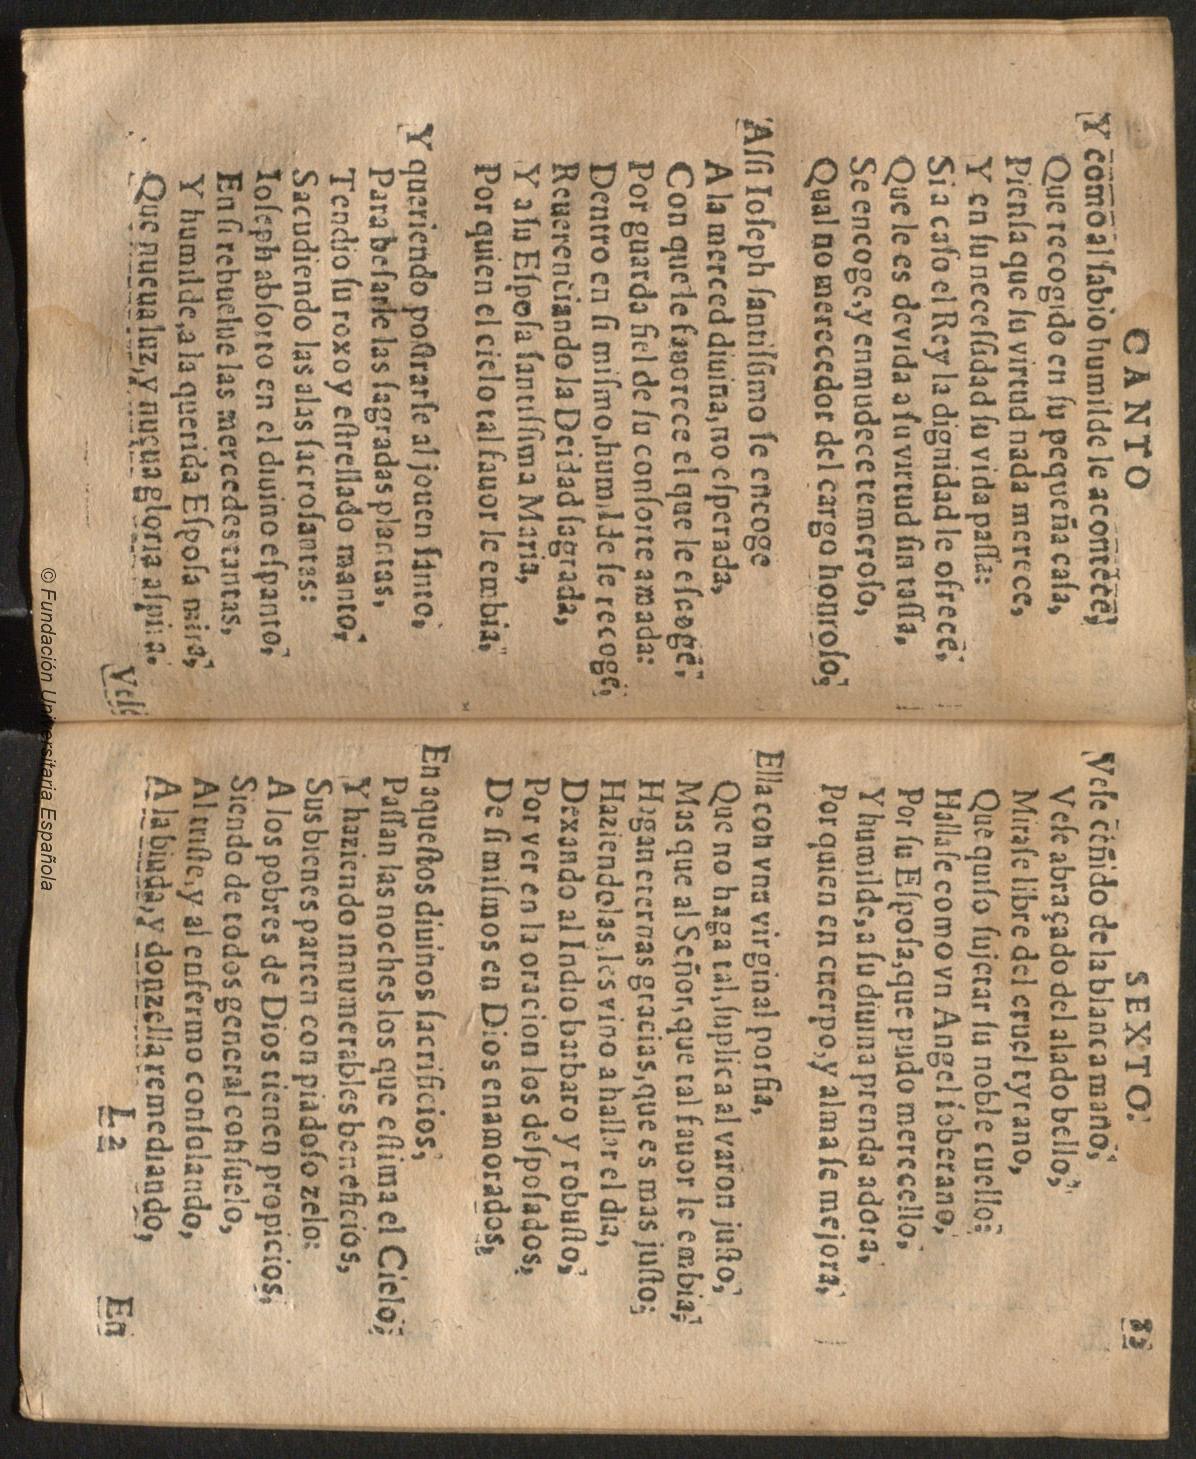 CANTO
Y como al ſabio humilde le acontece,
Que recogido en ſu pequeña caſa,
Pienſa que ſu virtud nada merece,
Y en ſu neceſſidad ſu vida paſſa:
Si a caſo el Rey la dignidad le ofrece,
Que le es devida a ſu virtud ſin taſſa,
Se encoge, y enmudece temeroſo,
Qual no merecedor del cargo honroſo,
Aſſi Ioſeph ſantiſsimo ſe encoge
A la merced diuina, no eſperada,
Con que le fauorece el que le eſcoge,
Por guarda fiel de ſu conſorte amada:
Dentro en ſi miſmo, humilde ſe recoge,
Reuerenciando la Deidad ſagrada,
Y a ſu Eſpoſa ſantiſſima Maria,
Por quien el cielo tal fauor le embia,
Y queriendo poſtrarſe al jouen ſanto,
Para beſarle las ſagradas plantas,
Tendio ſu roxo y eſtrellado manto,
Sacudiendo las alas ſacroſantas:
Ioſeph abſorto en el diuino eſpanto,
En ſi rebuelue las mercedes tantas,
Y humilde, a la querida Eſpoſa mira,
Que nueua luz, y nueua gloria aſpira.
Veſe
SEXTO.
83
Veſe ceñido de la blanca mano,
Veſe abraçado del alado bello,
Miraſe libre del cruel tyrano,
Que quiſo ſujetar ſu noble cuello:
Hallaſe como vn Angel ſoberano,
Por ſu Eſpoſa, que pudo merecello,
Y humilde, a ſu diuina prenda adora,
Por quien en cuerpo, y alma ſe mejora,
Ella con vna virginal porfia,
Que no haga tal, ſuplica al varon juſto,
Mas que al Señor, que tal fauor le embia,
Hagan eternas gracias, que es mas juſto;
Haziendolas, les vino a hallar el dia,
Dexando al Indio barbaro y robuſto,
Por ver en la oracion los deſpoſados,
De ſi miſmos en Dios enamorados,
En aqueſtos diuinos ſacrificios,
Paſſan las noches los que eſtima el Cielo,
Y haziendo innumerables beneficios,
Sus bienes parten con piadoſo zelo:
A los pobres de Dios tienen propicios,
Siendo de todos general conſuelo,
Al triſte, y al enfermo conſolando,
A la biuda, y donzella remediando,
L 2
En
© Fundación Universitaria Española